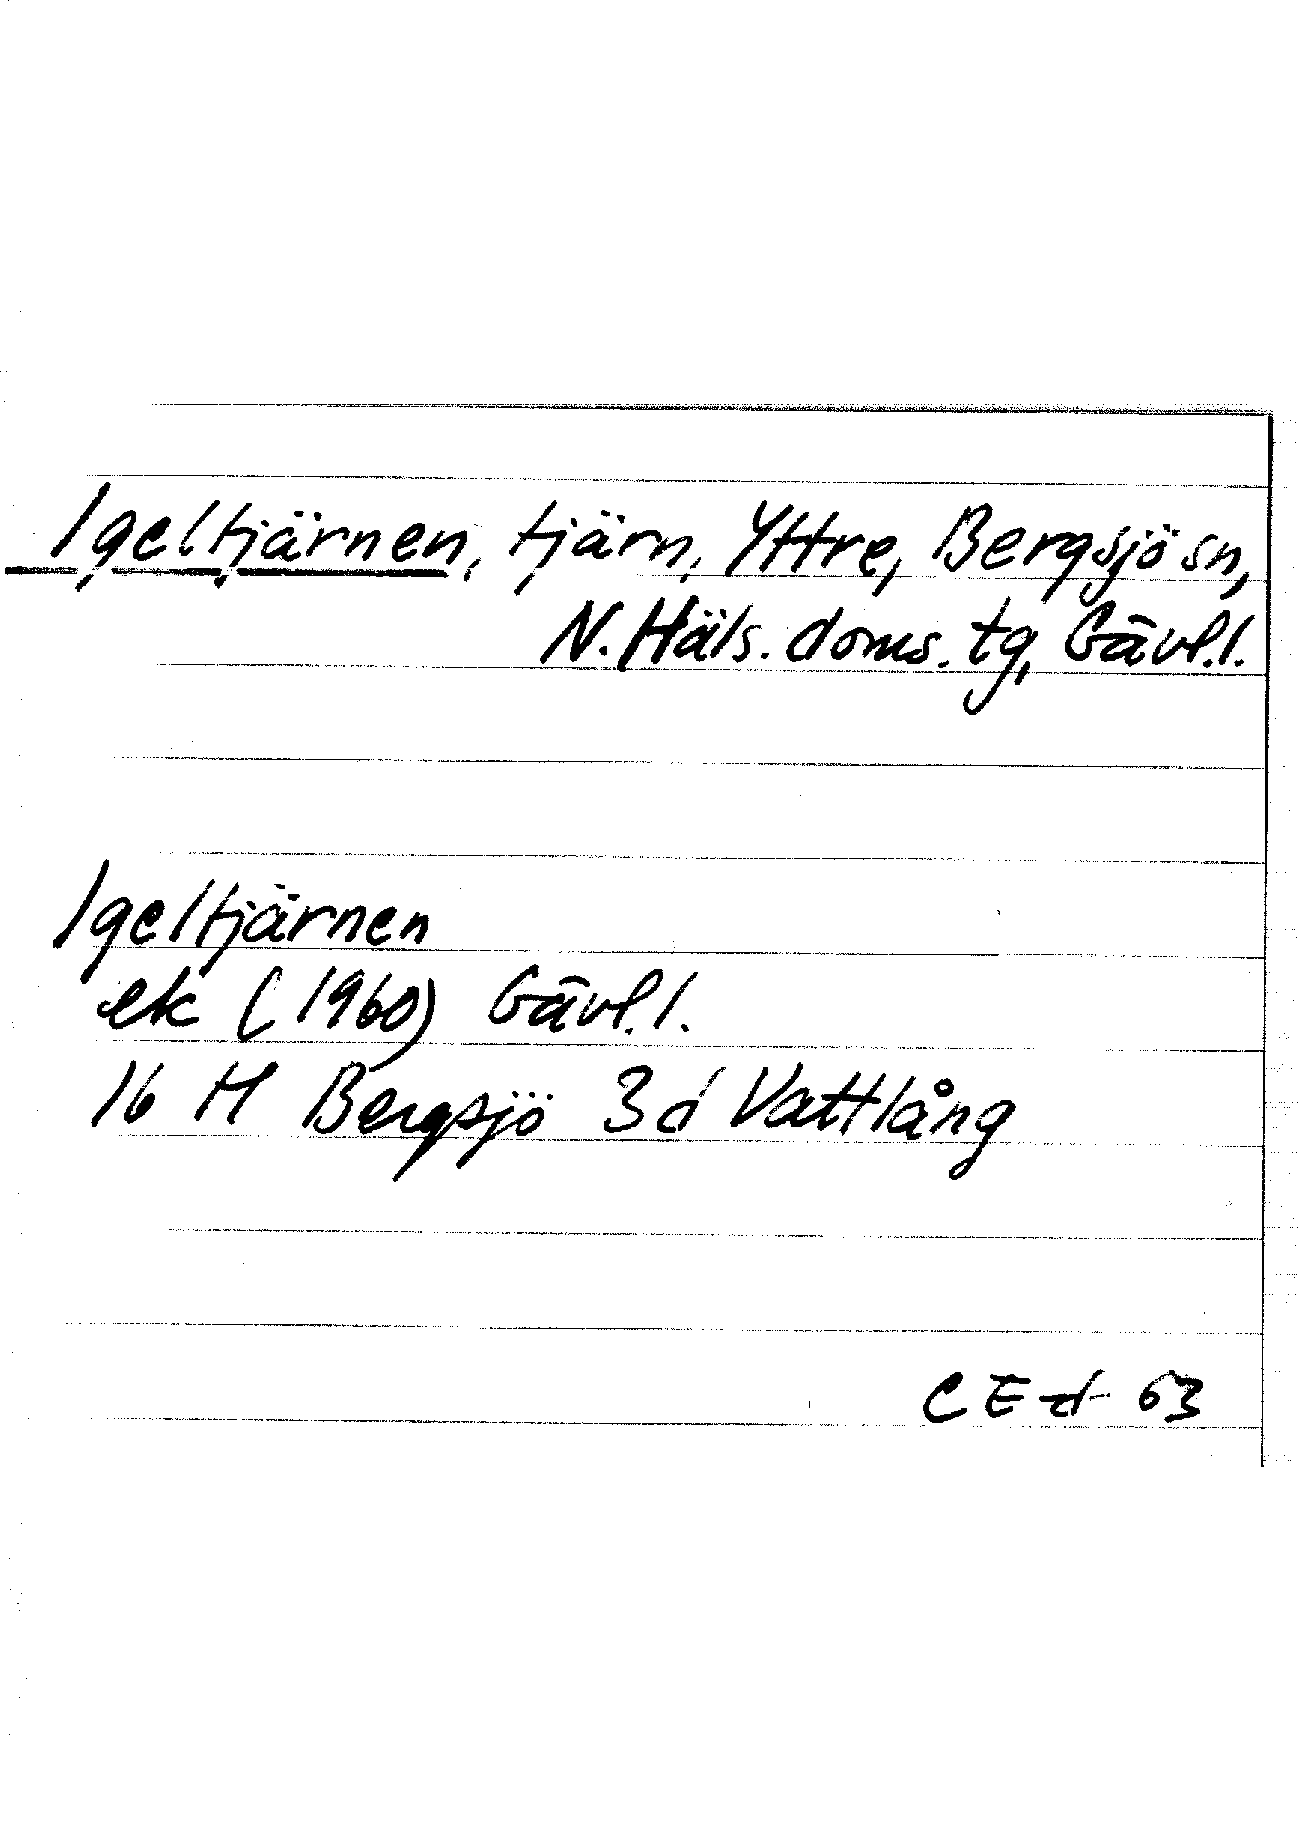 Igeltjärnen, tjärn, Yttre, Bergsjö sn,
N. Häls. doms. tg, Gävl.l.
Igeltjärnen
ek (1960) Gävl.l.
16 H Bergsjö 3 d Vattlång
C E-d 63